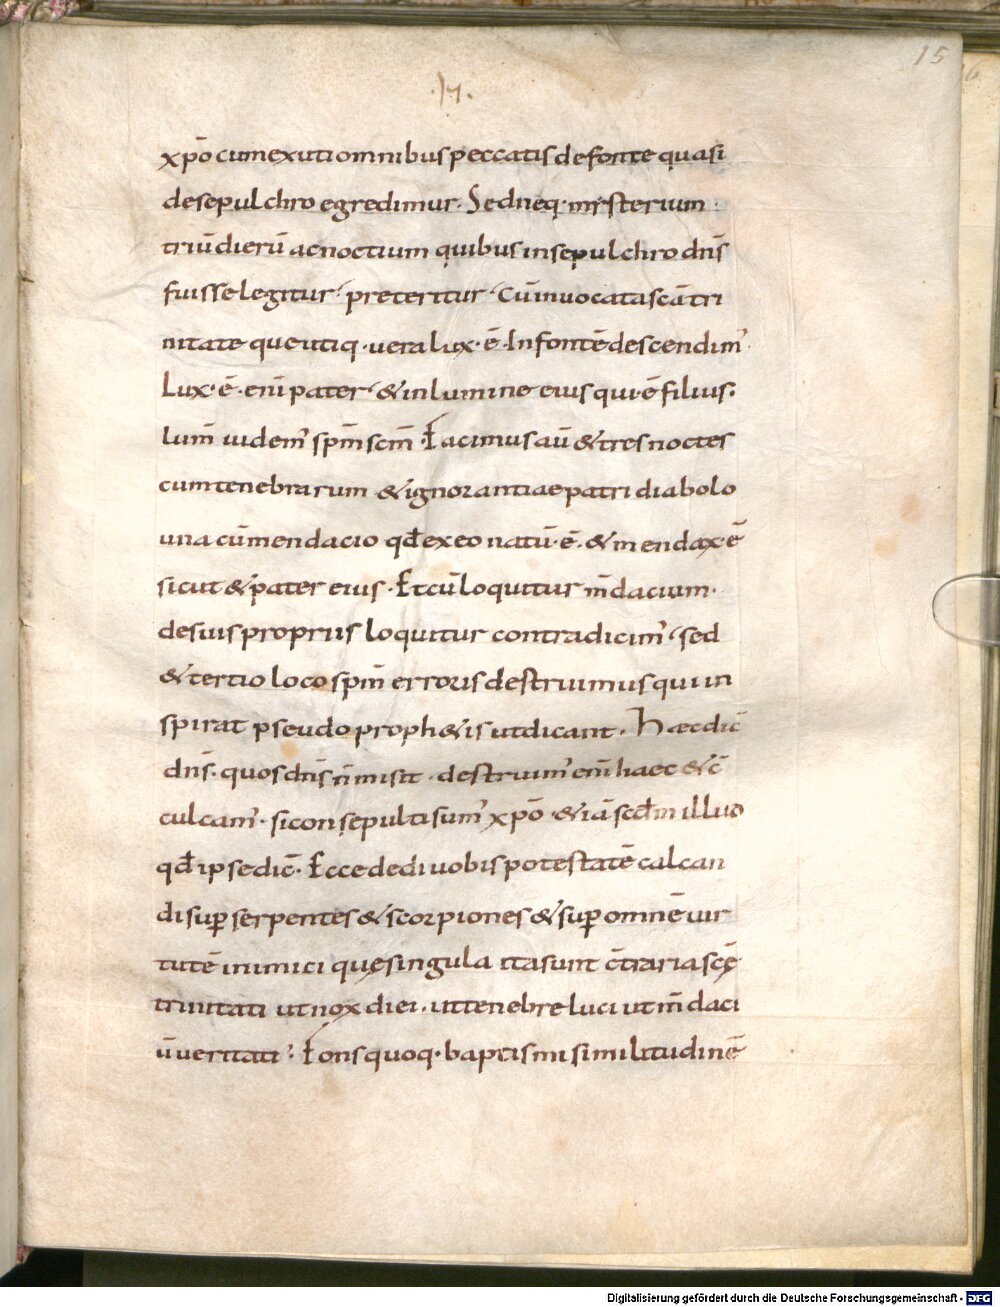 15
xp̄o cum exuti omnibus peccatis de fonte quasi
de sepulchro egredimur. Sed neq· mysterium
triū dierū ac noctium quibus in sepulchro dn̄s
fuisse legitur preteritur· Cū inuocata scā tri
nitate que utiq· uera lux· ē· In fontē descendim᾿
Lux· ē· eni pater· & in lumine eius qui· ē filius·
lum̄ uidem᾿ spm̄ scm̄· Facimus aū & tres noctes
cum tenebrarum & ignorantiae patri diabolo
una cū mendacio qđ ex eo natū· ē· & mendax· ē
sicut & pater eius· Et cū loquitur m̄dacium·
de suis propriis loquitur contradicim᾿· sed
& tertio loco spm̄ erroris destruimus qui in
spirat pseudoproph&is ut dicant· Haec dic̄
dn̄s· quos dn̄s n̄ misit· destruim᾿ eni haec & c̄
culcam᾿· sic consepulti sum᾿ xp̄o· & iā scđm illud
qđ ipse dic̄· Ecce dedi uobis potestatē calcan
di sup̄ serpentes & scorpiones & sup̄ omnē uir
tutē inimici quę singula ita sunt c̄traria scę̄
trinitati ut nox diei· ut tenebre luci ut m̄daci
ū ueritati· Fons quoq· baptismi similitudinē
Digitalisierung gefördert durch die Deutsche Forschungsgemeinschaft - DFG